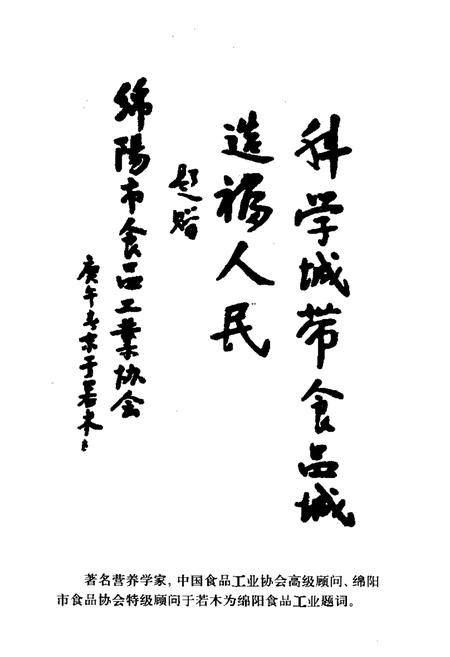 科学城带食品城
造福人民
题赠
绵阳市食品工业协会
庚午冬京于若木
著名营养学家，中国食品工业协会高级顾问、绵阳
市食品协会特级顾问于若木为绵阳食品工业题词。